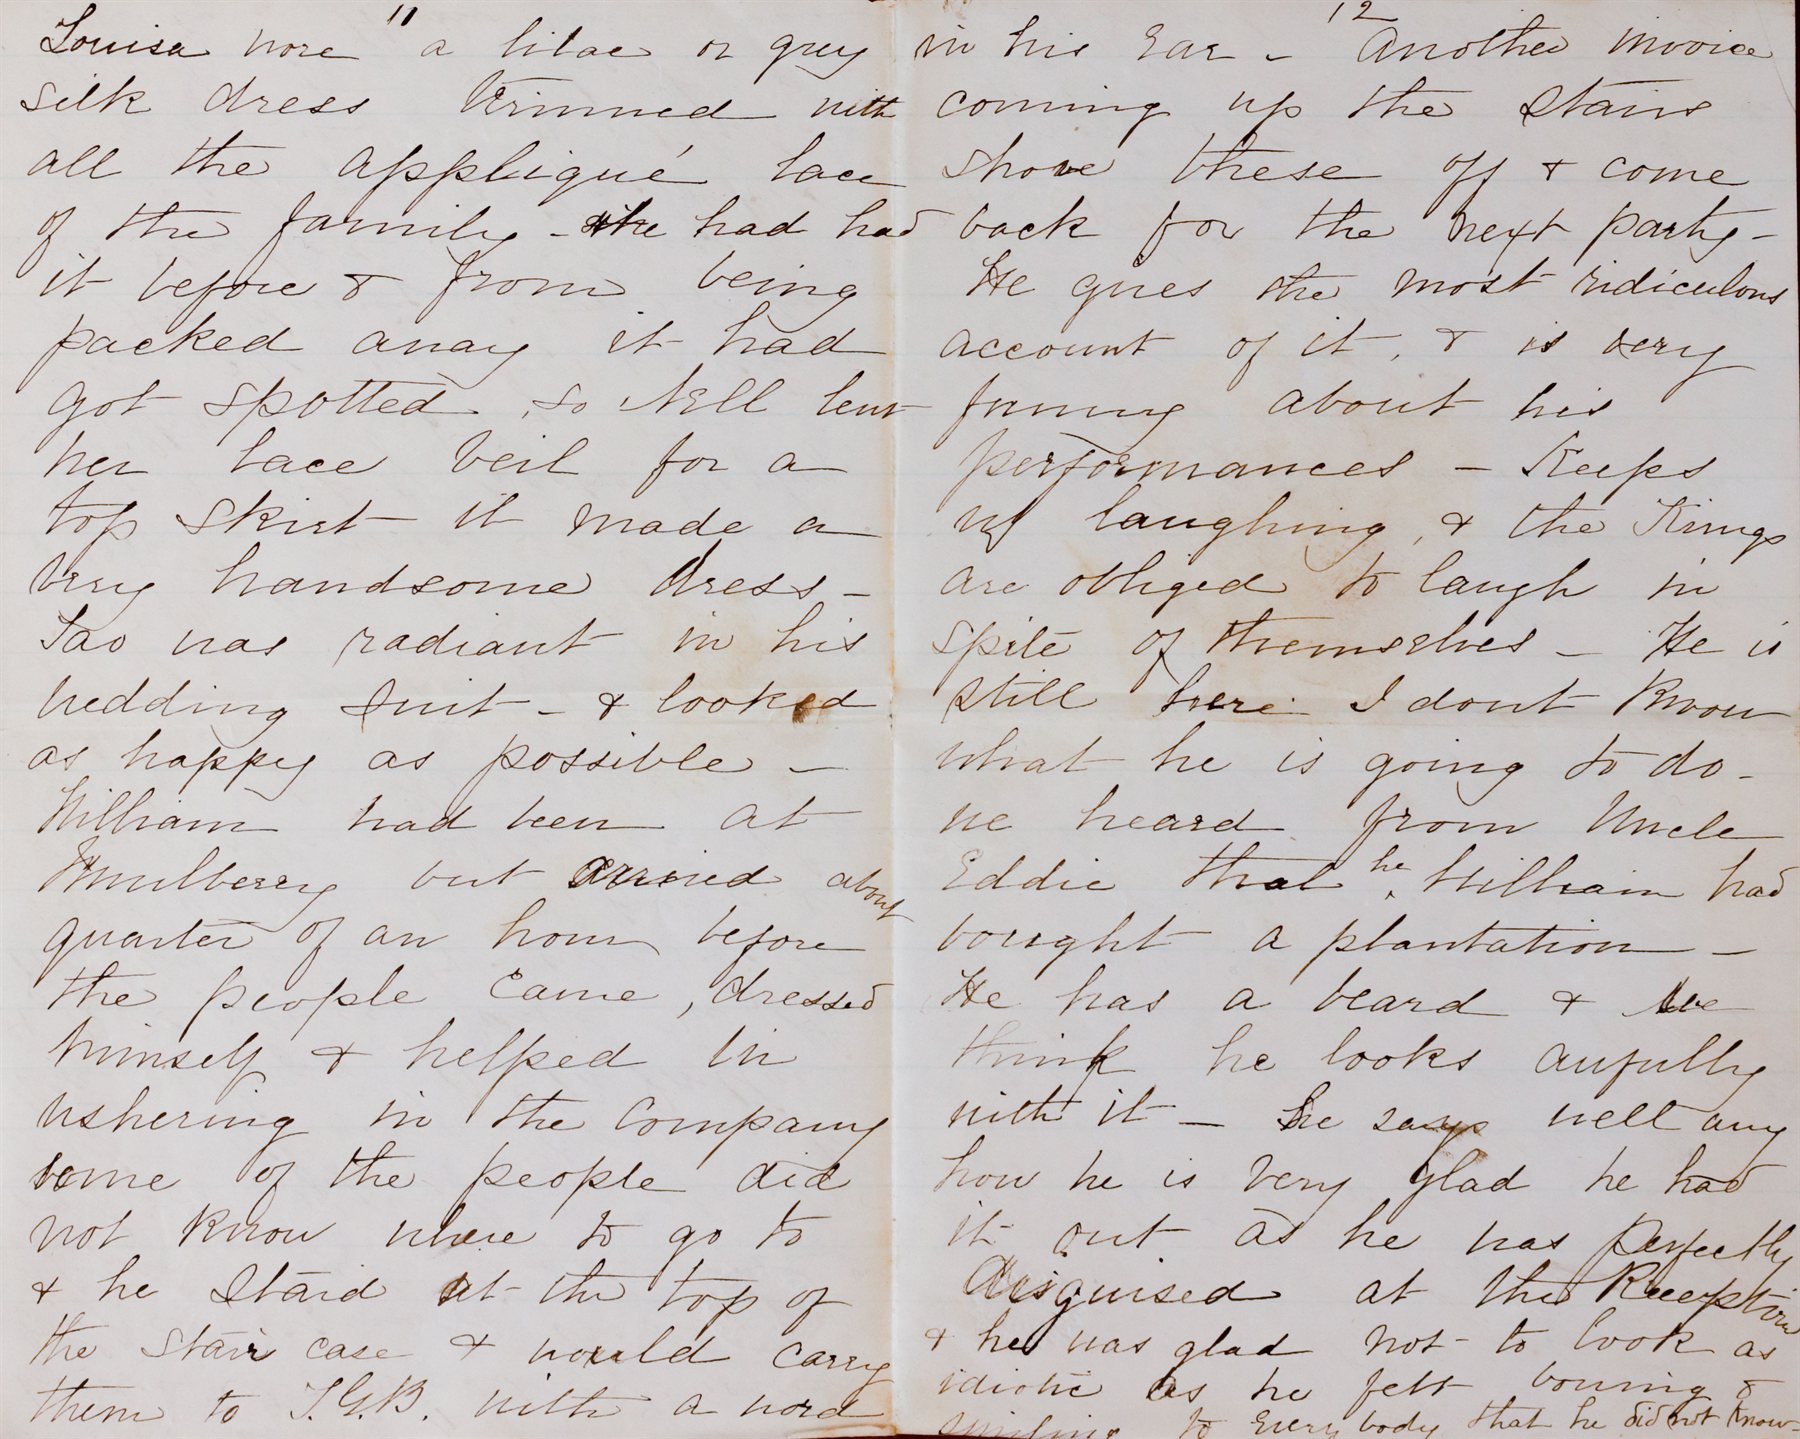 11
Louisa wore a lilac or grey
silk dress trimmed with
all the appliqué lace
of the family - she had had
it before & from being
packed away it had
got spotted, so Nell lent
her lace veil for a
top skirt - it made a
very handsome dress -
was radiant in his
wedding suit - & looked
as happy as possible -
William had been at
Mulberry but arrived about
quarter of an hour before
the people came, dressed
himself & helped in
ushering in the company
some of the people did
not know where to go to
& he staid at the top of
the stair case & would carry
them to T.G.B. with a word
12
in his ear - Another invoice
coming up the stairs
shove these off & come
back for the next party -
He gives the most ridiculous
account of it, & is very
funny about his
performances - Keeps
us laughing, & the Kings
are obliged to laugh in
spite of themselves - He is
still here I dont know
what he is going to do -
we heard from Uncle
Eddie that he William had
bought a plantation -
He has a beard & we
think he looks awfully
with it - he says well any
how he is very glad he had
it out as he was perfectly
disguised at the Reception
& he was glad not to look as
idiotic as he felt bowing &
smiling to every body that he did not know -